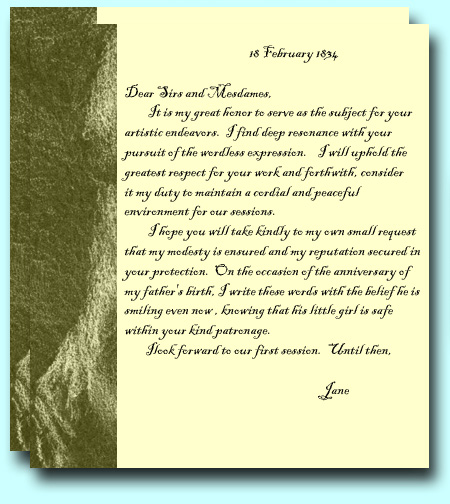 18 February 1834
Dear Sirs and Mesdames,
It is my great honor to serve as the subject for your
artistic endeavors. I find deep resonance with your
pursuit of the wordless expression. I will uphold the
greatest respect for your work and forthwith, consider
it my duty to maintain a cordial and peaceful
environment for our sessions.
I hope you will take kindly to my own small request
that my modesty is ensured and my reputation secured in
your protection. On the occasion of the anniversary of
my father's birth, I write these words with the belief he is
smiling even now , knowing that his little girl is safe
within your kind patronage.
I look forward to our first session. Until then,
Jane